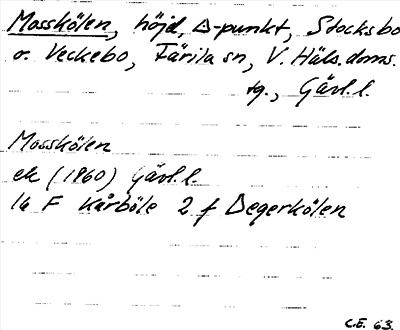 Mosskölen, höjd, △-punkt, Stocksbo
o. Veckebo, Färila sn, V. Häls. doms.
tg., Gävl. l.
Mosskölen
ek (1960) Gävl. l.
16 F Kårböle 2 f Degerkölen
C.E. 63.